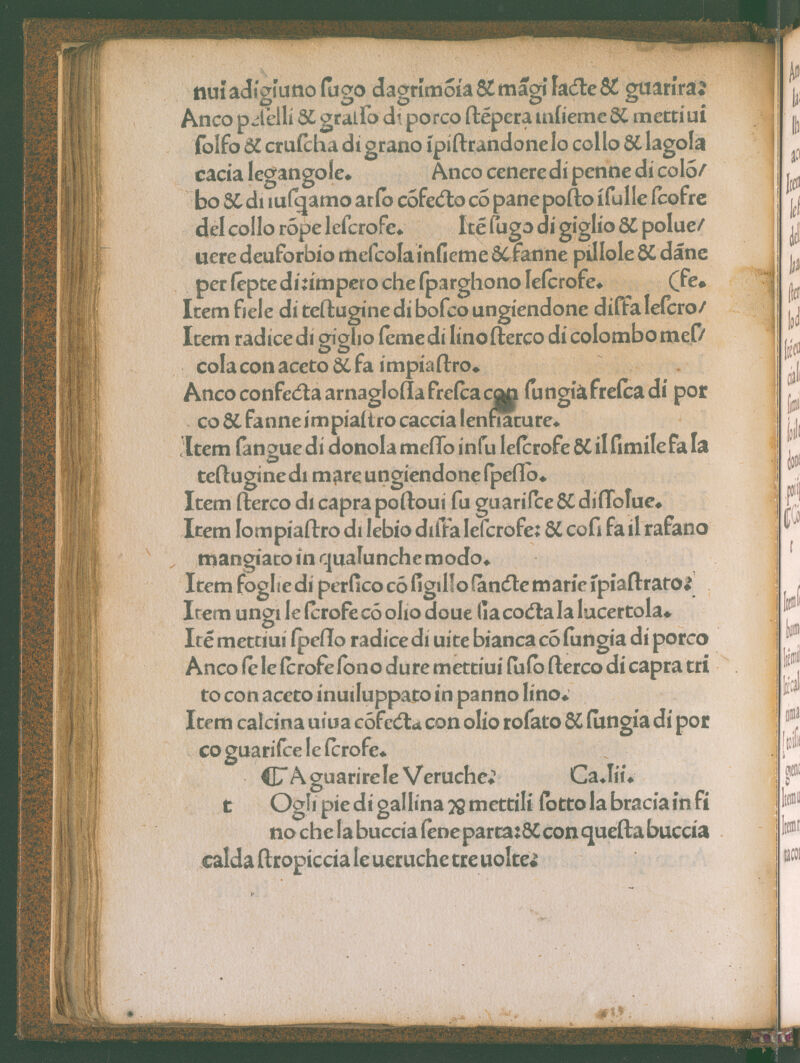 nui adigiuno ſugo dagrimõia & mãgi lacte & guarira:
Anco piſelli & graſſo di porco ſtẽpera inſieme & mettiui
ſolfo & cruſcha di grano ĩpiſtrandonelo collo & lagola
cacia legangole. Anco cenere di penne di colõ/
bo & di iuſqamo arſo cõfecto cõ pane poſto ĩſulle ſcofre
del collo rõpe leſcrofe. Itẽ ſugo di giglio & polue/
uere deuforbio meſcola inſieme & fanne pillole & dãne
per ſepte di:impero che ſparghono leſcrofe. (fe.
Item fiele di teſtugine di boſco ungiendone diſfa leſcro/
Item radice di giglio ſeme di lino ſterco di colombo meſ/
cola con aceto & fa impiaſtro.
Anco confecta arnagloſſa freſca con ſungia freſca di por
co & fanne impiaſtro caccia lenfiature.
Item ſangue di donola meſſo inſu leſcrofe & il ſimile fa la
teſtugine di mare ungiendone ſpeſſo.
Item ſterco di capra poſtoui ſu guariſce & diſſolue.
Item lompiaſtro di lebio diſfa leſcrofe: & coſi fa il rafano
mangiato in qualunche modo.
Item foglie di perſico cõ ſigillo ſancte marie ĩpiaſtrato:
Item ungi le ſcrofe cõ olio doue ſia cocta la lucertola.
Itẽ mettiui ſpeſſo radice di uite bianca cõ ſungia di porco
Anco ſe le ſcrofe ſono dure mettiui ſuſo ſterco di capra tri
to con aceto inuiluppato in panno lino.
Item calcina uiua cõfecta con olio roſato & ſungia di por
co guariſce le ſcrofe.
¶ A guarire le Veruche: Ca.lii.
t Ogli pie di gallina ꝛ mettili ſotto la bracia in fi
no che la buccia ſene parta:& con queſta buccia
calda ſtropiccia le ueruche tre uolte: